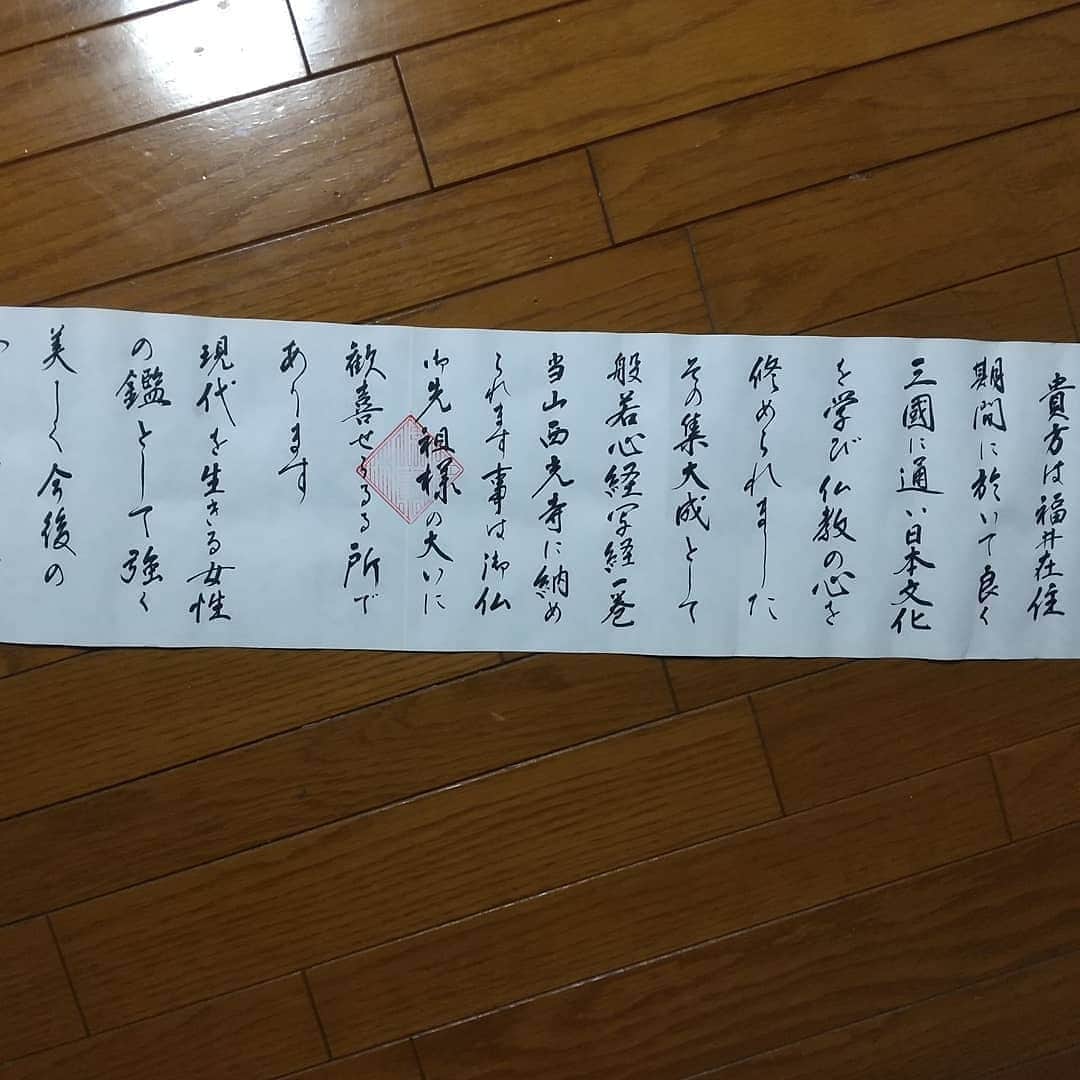 貴方は福井在住
期間に於いて良く
三國に通い日本文化
を学び仏教の心を
修められました
その集大成として
般若心経写経一巻
当山西光寺に納め
られます事は御仏
御先祖様の大いに
歓喜せらるる所で
あります
現代を生きる女性
の鑑として強く
美しく今後の